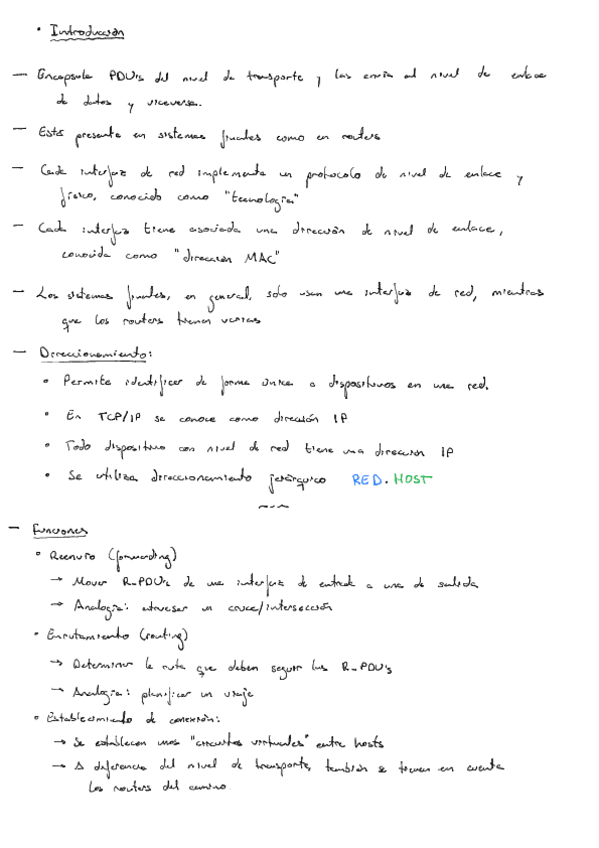 • Introducción
— Encapsula PDU's del nivel de transporte y las envía al nivel de enlace
de datos y viceversa.
— Está presente en sistemas finales como en routers
— Cada interfaz de red implementa un protocolo de nivel de enlace y
físico, conocido como "tecnología"
— Cada interfaz tiene asociada una dirección de nivel de enlace,
conocida como "dirección MAC"
— Los sistemas finales, en general, solo usan una interfaz de red, mientras
que los routers tienen varias
— Direccionamiento:
• Permite identificar de forma única a dispositivos en una red.
• En TCP/IP se conoce como dirección IP
• Todo dispositivo con nivel de red tiene una dirección IP
• Se utiliza direccionamiento jerárquico RED.HOST
— Funciones
• Reenvío (forwarding)
→ Mover R_PDU's de una interfaz de entrada a una de salida
→ Analogía: atravesar un cruce/intersección
• Enrutamiento (routing)
→ Determinar la ruta que deben seguir las R_PDU's
→ Analogía: planificar un viaje
• Establecimiento de conexión:
→ Se establecen unos "circuitos virtuales" entre hosts
→ A diferencia del nivel de transporte, también se tienen en cuenta
los routers del camino